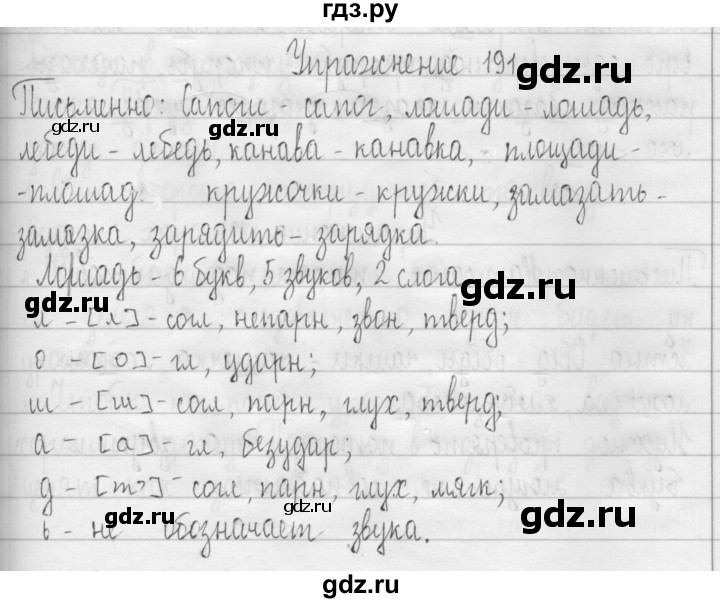 гдз.ру
Упражнение 191
gdz.ru
Письменно: Сапоги - сапог, лошади - лошадь,
gdz.ru
gdz.ru
лебеди - лебедь, канава - канавка, - площади -
-площад: кружочки - кружки, замазать -
gdz.ru
замазка, зарядить - зарядка.
Лошадь - 6 букв, 5 звуков, 2 слога
gdz.ru
л - [л] - согл, непарн, звон, тверд;
gdz.ru
о - [о] - гл, ударн;
gdz.ru
ш - [ш] - согл, парн, глух, тверд;
gdz.ru
а - [а] - гл, безудар;
д - [т'] - согл, парн, глух, мягк;
gdz.ru
gdz.ru
ь - не обозначает звука.
gdz.ru
gdz.ru